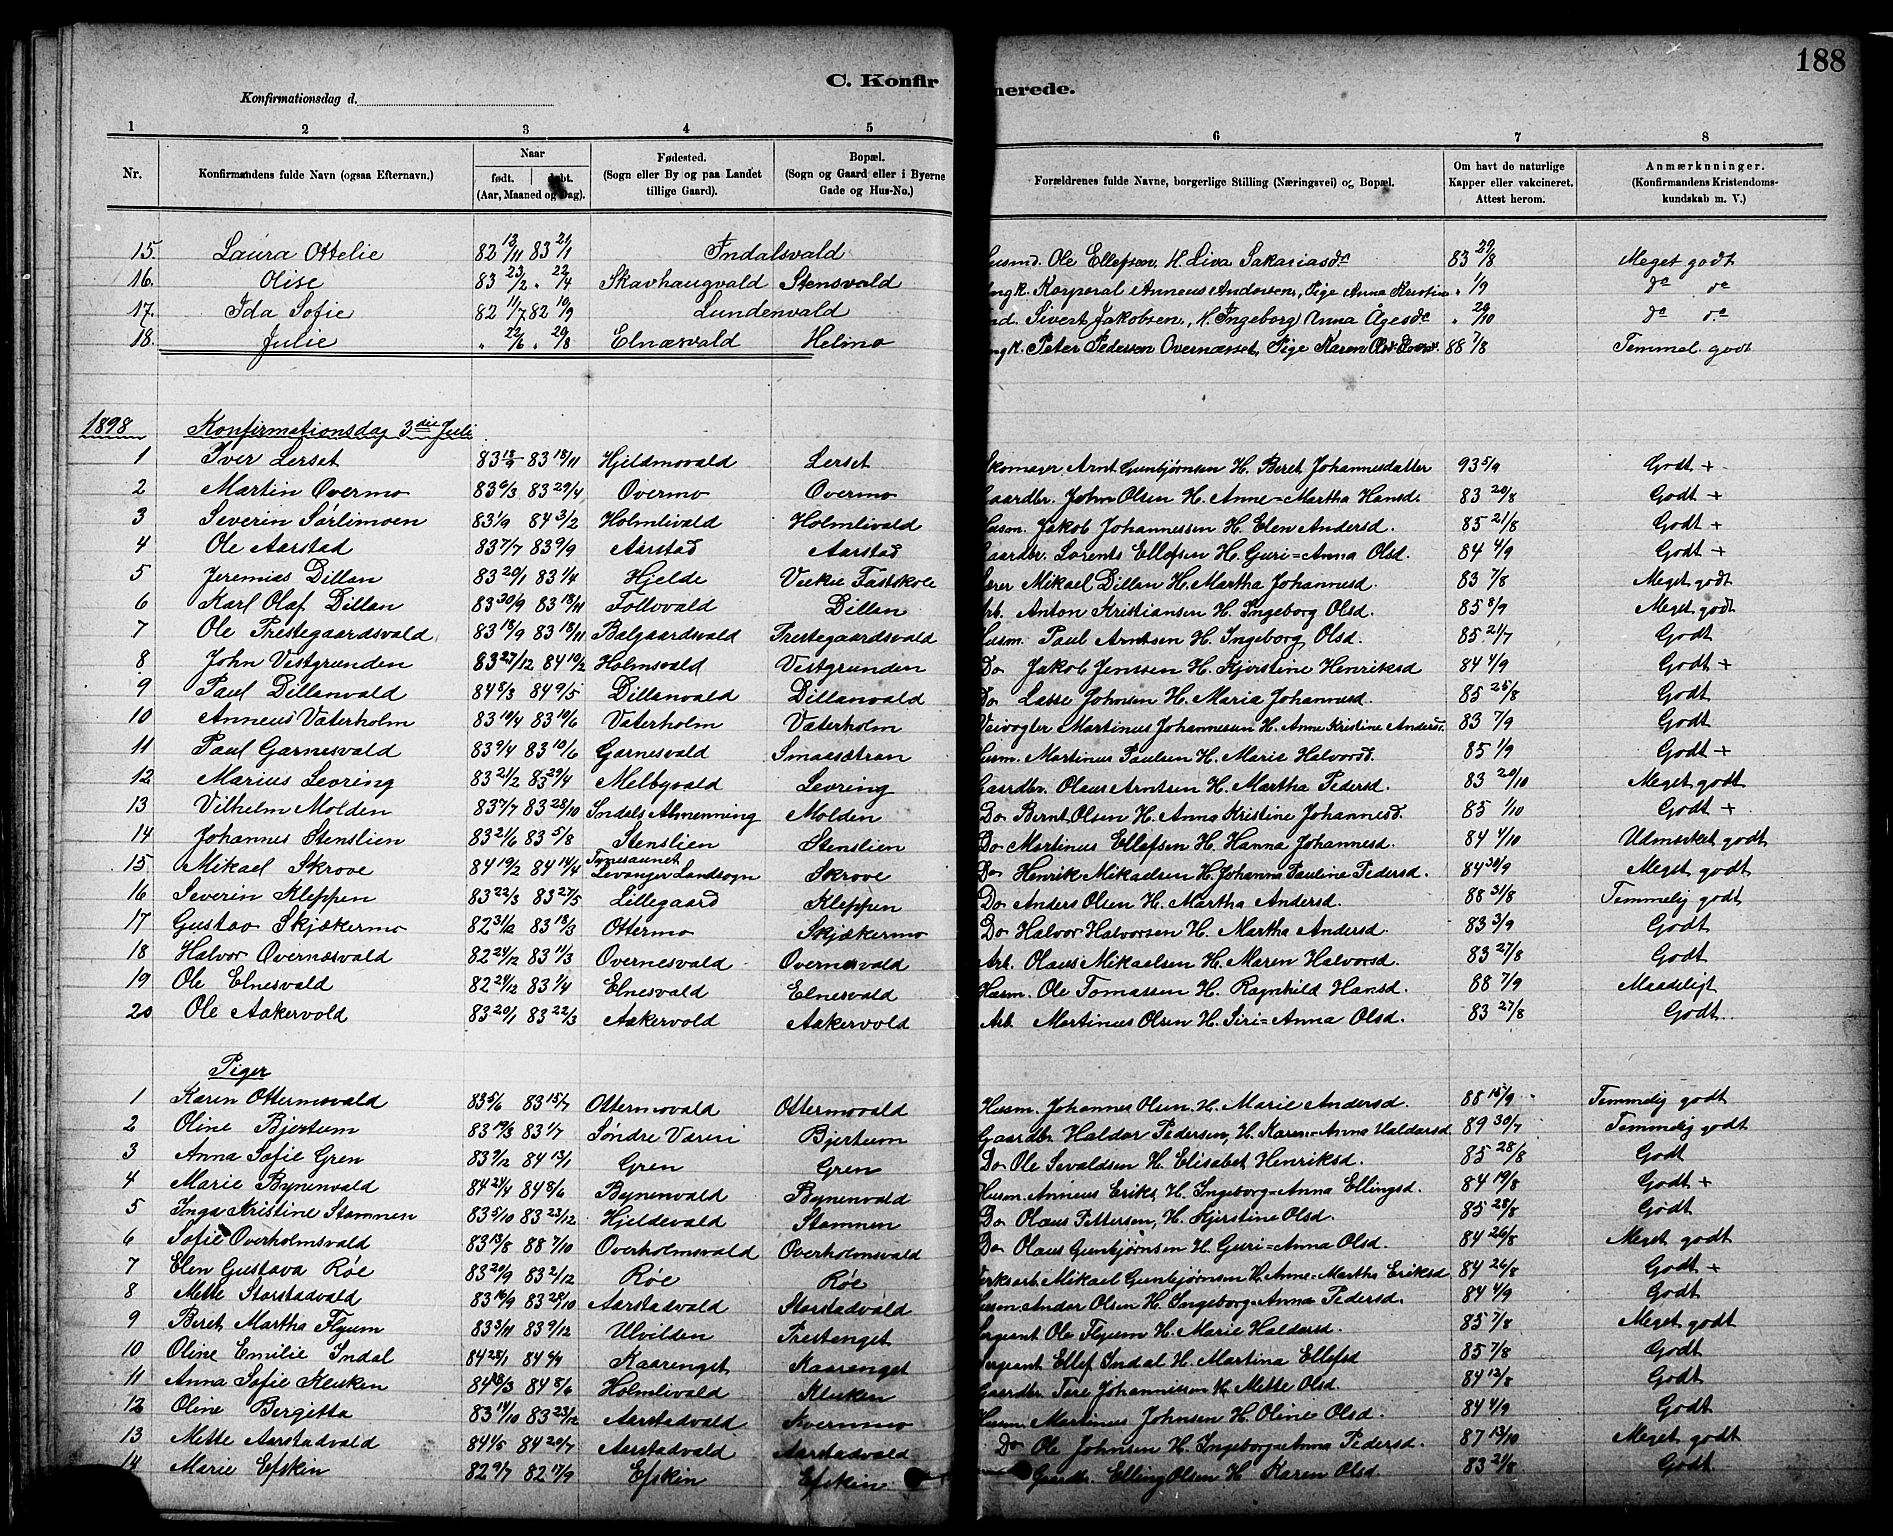 188
C. Konfir merede.
Konfirmationsdag d.
1 2 3 4 5 6 7 8
Nr. Konfirmandens fulde Navn (ogsaa Efternavn.) Naar født. døbt. (Aar, Maaned og Dag). Fødested. (Sogn eller By og paa Landet tillige Gaard). Bopæl. (Sogn og Gaard eller i Byerne Gade og Hus-No.) Forældrenes fulde Navne, borgerlige Stilling (Næringsvei) og Bopæl. Om havt de naturlige Kopper eller vakcineret. Attest herom. Anmærkninger. (Konfirmandens Kristendomskundskab m. V.)
15. Laura Ottelie 82 13/11 83 21/1 Indalsvald Husmd. Ole Ellefsen, H. Liva Sakariasdr 83 29/8 Meget godt
16. Olise 83 23/2 " 22/4 Skavhaugvald Stensvald Ungk. Korporal Anneus Andersen, Pige Anna Kristine " 1/9 do do
17. Ida Sofie 82 11/7 82 10/9 Lundenvald Sivert Jakobsen, H. Ingeborg Anna Ågesdr " 20/10 do do
18. Julie " 22/6 " 20/8 Elnæsvald Helmo Ungk. Peter Pedersen Overnæsset, Pige Karen 88 7/8 Temmel. godt
1898 Konfirmationsdag 3die Juli
1 Iver Lerset 83 18/9 83 18/11 Hjeldmovald Lerset Skomager Arnt Gunbjørnsen H. Beret Johannesdatter 93 5/9 Godt +
2 Martin Overmo 83 6/3 83 29/4 Overmo Overmo Gaardbr. John Olsen H. Anne=Martha Hansd. 83 20/8 Godt +
3 Severin Sørlimoen 83 1/9 84 3/2 Holmlivald Holmlivald Husm. Jakob Johannessen H. Elen Andersd. 85 21/8 Godt +
4 Ole Aarstad 83 7/7 83 9/9 Aarstad Aarstad Gaardbr. Lorents Ellefsen H. Guri=Anna Olsd. 84 4/9 Godt +
5 Jeremias Dillan 83 20/1 83 1/4 Hjelde Vukie Fastskole Lærer Mikael Dillan H. Martha Johannesd. 83 7/8 Meget godt
6 Karl Olaf Dillan 83 30/9 83 18/11 Follovald Dillan Arb. Anton Kristiansen H. Ingeborg Olsd. 85 8/9 Meget godt
7 Ole Prestegaardsvald 83 18/9 83 18/11 Balgaardsvald Prestegaardsvald Husm. Paul Arntsen H. Ingeborg Olsd. 85 21/7 Godt
8 John Vestgrunden 83 27/12 84 10/2 Holmsvald Vestgrunden Do Jakob Jenssen H. Kjerstine Henriksd 84 4/9 Godt +
9 Paul Dillanvald 84 8/3 84 9/5 Dillanvald Dillanvald Do Lasse Johnsen H. Maria Johannesd. 85 25/8 Godt
10 Anneus Vaterholm 83 10/4 83 10/6 Vaterholm Vaterholm Veivogter Martinus Johannessen H. Anne Kristine Andersd. 83 7/9 Godt
11 Paul Garnesvald 83 9/4 83 10/6 Garnesvald Smaasætran Husm. Martinus Paulsen H. Marie Halvorsd. 85 1/9 Godt +
12 Marius Levring 83 21/2 83 29/4 Melbyvald Levring Gaardbr. Olaus Arntsen H. Martha Pedersd. 83 20/10 Meget godt
13 Vilhelm Molden 83 7/7 83 28/10 Indals Almenning Molden Do Bernt Olsen H. Anna Kristine Johannesd. 85 1/10 Godt +
14 Johannes Stenslien 83 21/6 83 5/8 Stenslien Stenslien Do Martinus Ellefsen H. Hanna Johannesd. 84 4/10 Udmærket godt
15 Mikael Skrove 84 19/2 84 14/4 Tynesaunet Levanger Landsogn Skrove Do Henrik Mikaelsen H. Johanna Pauline Pedersd. 84 30/9 Meget godt
16 Severin Kleppen 83 22/3 83 27/5 Lillegaard Kleppen Do Anders Olsen H. Martha Andersd. 88 31/8 Temmelig godt
17 Gustav Skjækermo 82 31/12 83 18/3 Ottermo Skjækermo Do Halvor Halvorsen H. Martha Andersd. 83 3/9 Godt
18 Halvor Overnæsvald 82 24/12 83 11/3 Overnesvald Overnesvald Arb. Olaus Mikaelsen H. Maren Halvorsd. 83 27/8 Godt
19 Ole Elnesvald 82 24/12 83 1/4 Elnesvald Elnesvald Husm. Ole Tomassen H. Ragnhild Hansd. 88 7/9 Maadeligt
20 Ole Aakervold 83 20/1 83 22/3 Aakervold Aakervold Arb. Martinus Olsen H. Siri=Anna Olsd. 83 27/8 Godt
Piger
1 Karen Ottermovald 83 5/6 83 15/7 Ottermovald Ottermovald Husm. Johannes Olsen H. Marie Andersd. 88 15/9 Temmelig godt
2 Oline Bjertum 83 19/3 83 1/7 Søndre Væren Bjertum Gaardbr. Haldor Pedersen, H. Karen=Anna Haldorsd 89 30/7 Temmelig godt
3 Anna Sofie Gren 83 9/12 84 13/1 Gren Gren Do Ole Sevaldsen H. Elisabet Henriksd. 85 28/8 Godt
4 Marie Bynenvald 84 24/4 84 8/6 Bynenvald Bynenvald Husm. Anneus Eriks. H. Ingeborg=Anna Ellingsd. 84 19/8 Godt +
5 Inga Kristine Stammen 83 5/10 83 23/12 Hjeldevald Stammen Do Olaus Pettersen, H. Kjerstine Olsd. 85 28/8 Godt
6 Sofie Overholmsvald 83 13/8 88 7/10 Overholmsvald Overholmsvald Do Olaus Gunbjørnsen H. Guri=Anna Olsd. 84 26/8 Meget godt
7 Elen Gustava Røe 83 20/9 83 2/12 Røe Røe Verksarb. Mikael Gunbjørnsen H. Anne=Martha Eriksd 84 26/8 Godt +
8 Mette Storstadvald 83 16/9 83 28/10 Aarstadvald Storstadvald Husm. Andor Olsen H. Ingeborg=Anna Pedersd. 84 4/9 Godt
9 Beret Martha Flyum 83 3/11 83 9/12 Ulvilden Prestenget Sergeant Ole Flyum H. Marie Haldorsd. 85 7/8 Meget godt
10 Oline Emilie Indal 84 28/1 84 6/4 Kaarenget Kaarenget Sergeant Ellef Indal H. Martina Ellefsd 85 7/8 Godt
11 Anna Sofie Kluken 84 18/3 84 8/6 Holmlivald Kluken Gaardbr. Tore Johannissen H. Mette Olsd. 84 12/8 Godt
12 Oline Bergitta 83 14/10 83 23/12 Aarstadvald Kvernmo Husm. Martinus Johnsen H. Oline Olsd. 84 4/9 Godt
13 Mette Aarstadvald 84 4/5 84 20/7 Aarstadvald Aarstadvald Do Ole Johnsen H. Ingeborg=Anna Pedersd. 87 13/10 Meget godt
14 Marie Efskin 82 9/7 82 17/9 Efskin Efskin Gaardbr. Elling Olsen H. Karen Olsd. 83 21/8 Godt